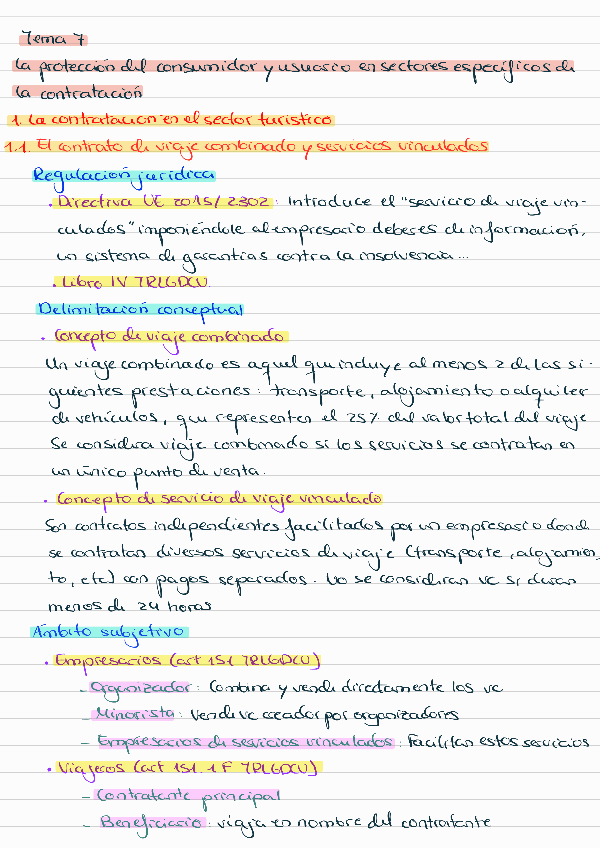 Tema 7
La protección del consumidor y usuario en sectores específicos de
la contratación
1. La contratación en el sector turístico
1.1. El contrato de viaje combinado y servicios vinculados
Regulación jurídica
· Directiva UE 2015/2302: Introduce el "servicio de viaje vin-
culados" imponiéndole al empresario deberes de información,
un sistema de garantías contra la insolvencia...
· Libro IV TRLGDCU
Delimitación conceptual
· Concepto de viaje combinado
Un viaje combinado es aquel que incluye al menos 2 de las si-
guientes prestaciones: transporte, alojamiento o alquiler
de vehículos, que representen el 25% del valor total del viaje
Se considera viaje combinado si los servicios se contratan en
un único punto de venta.
· Concepto de servicio de viaje vinculado
Son contratos independientes facilitados por un empresario donde
se contratan diversos servicios de viaje (transporte, alojamien-
to, etc) con pagos separados. No se consideran vc si duran
menos de 24 horas
Ámbito subjetivo
· Empresarios (art 151 TRLGDCU)
- Organizador: Combina y vende directamente los vc
- Minorista: Vende vc creador por organizadores
- Empresarios de servicios vinculados: Facilitan estos servicios
· Viajeros (art 151.1 F TRLGDCU)
- Contratante principal
- Beneficiario: viaja en nombre del contratante